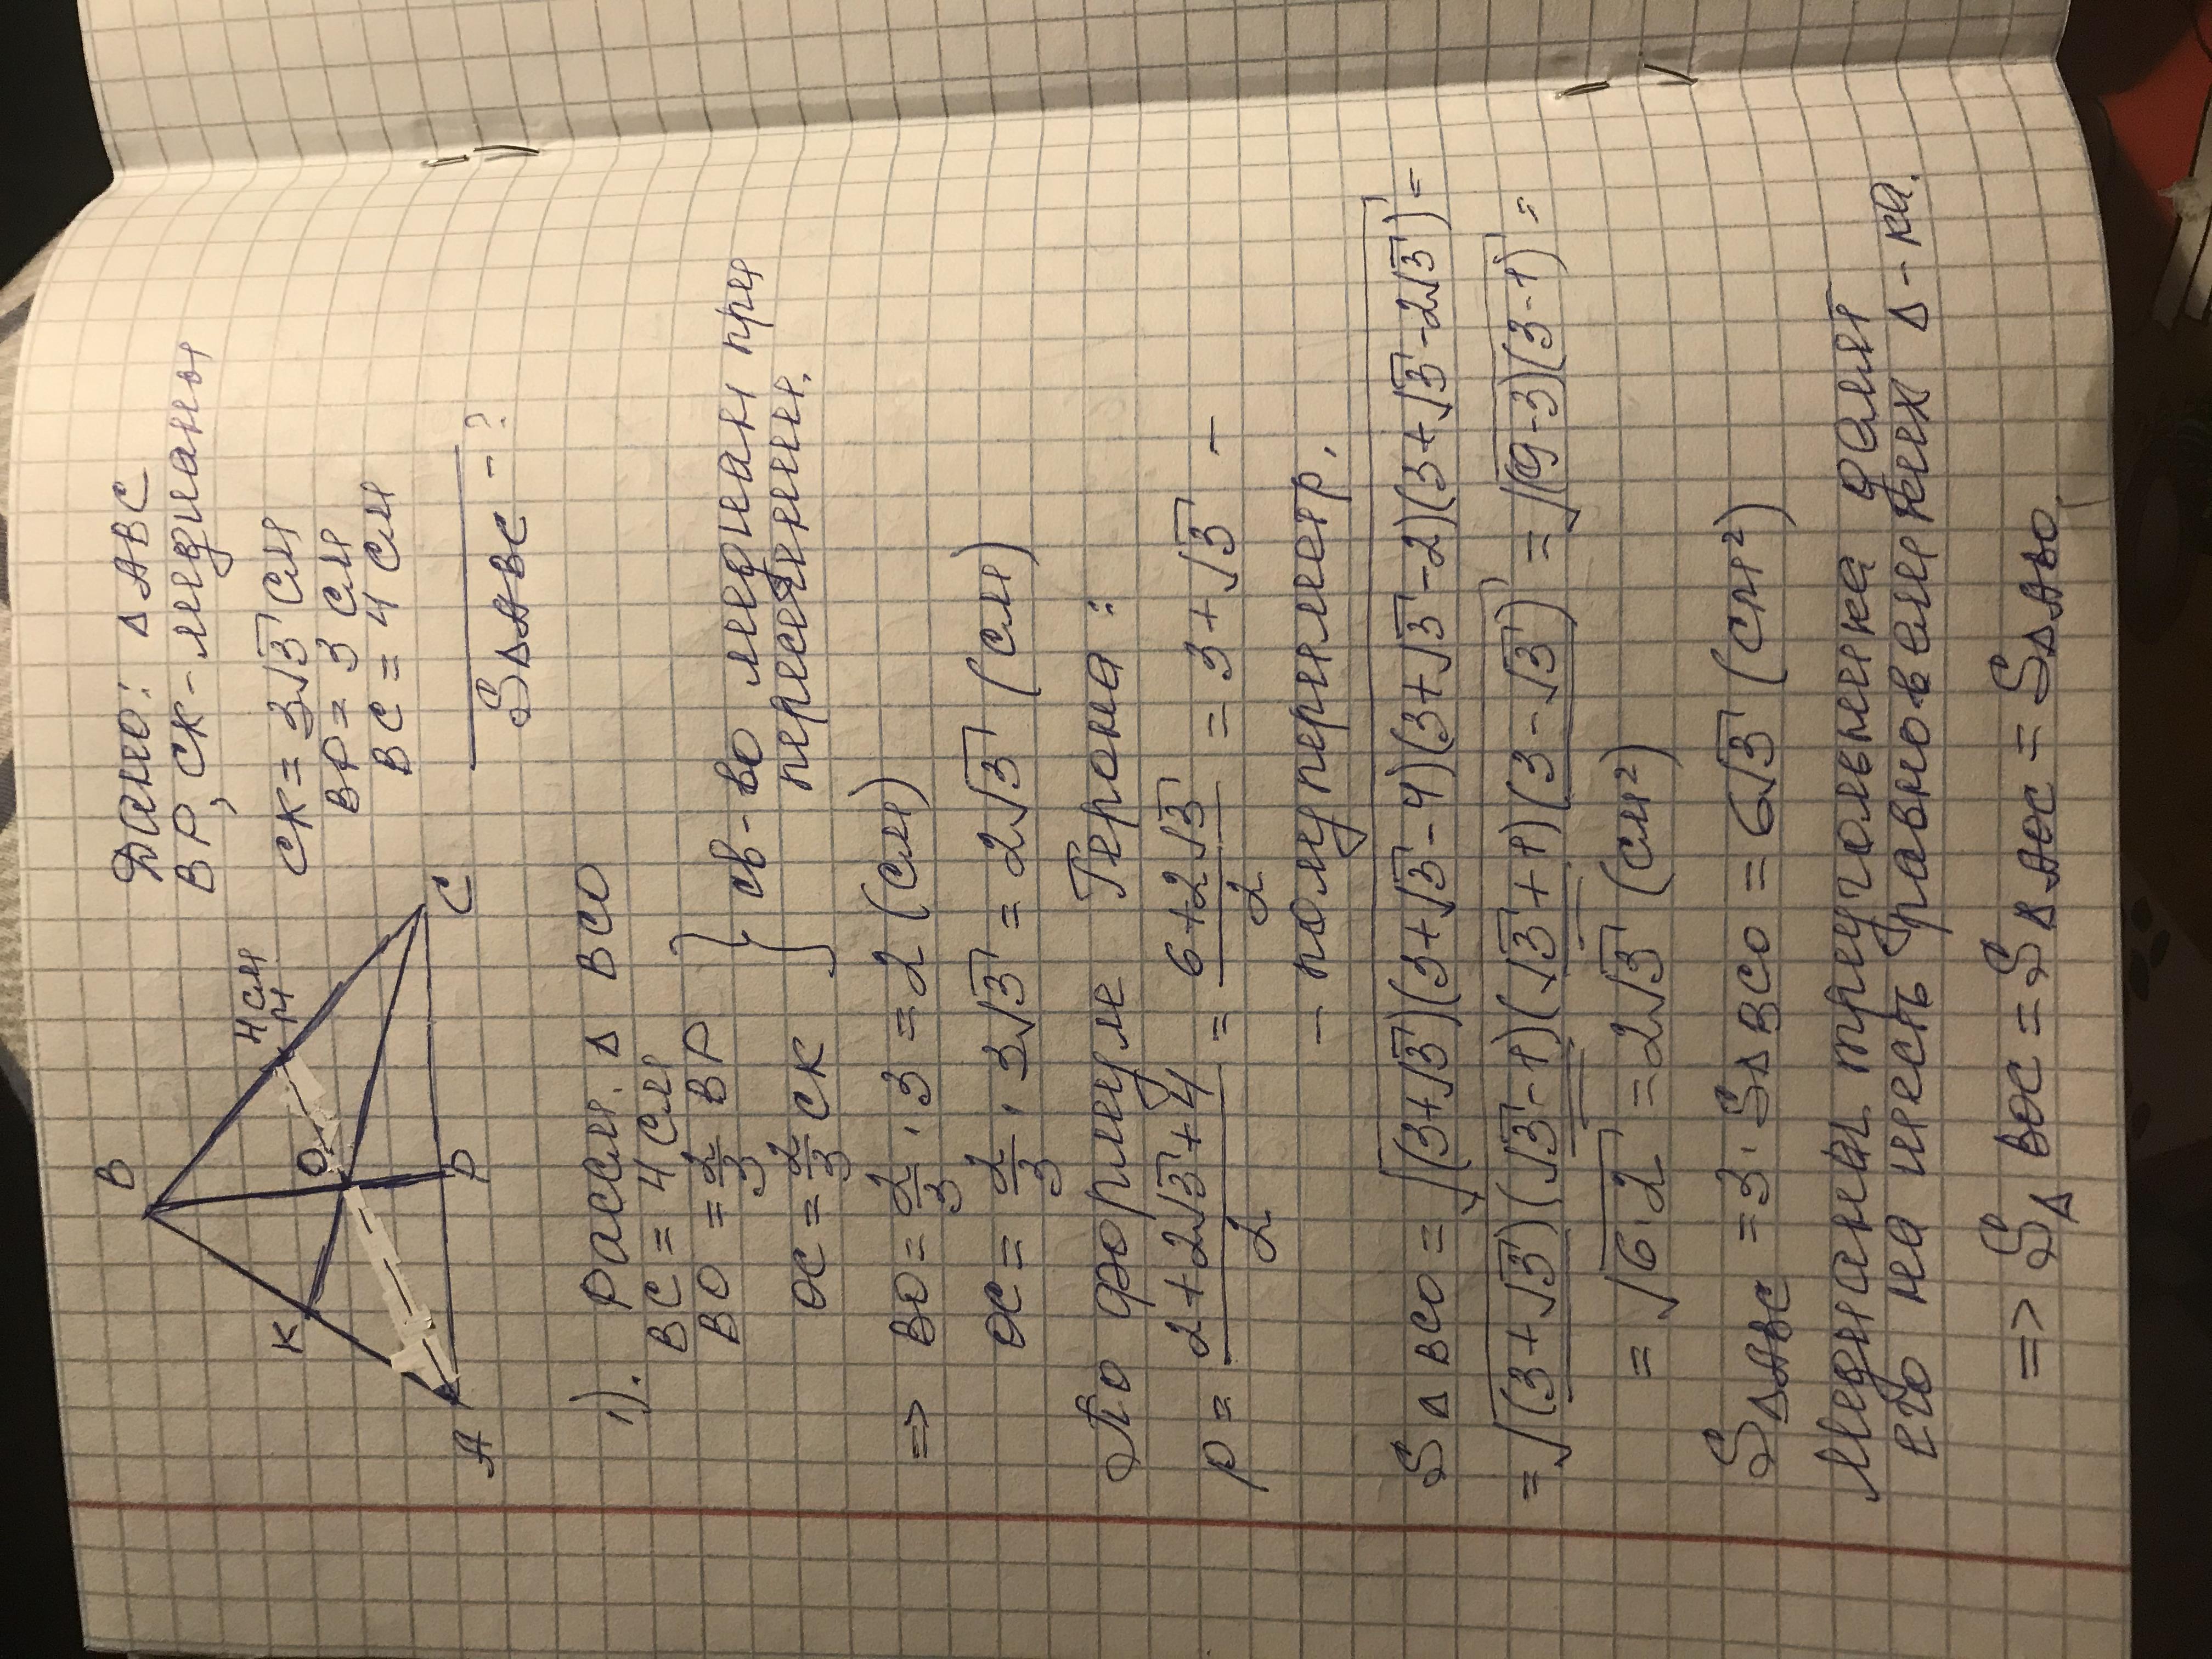 Дано: Δ ABC
BP, CK - медианы
CK = 3√3 см
BP = 3 см
BC = 4 см
S ΔABC - ?
B
4 см
K
O
A
P
C
1). Рассм. Δ BCO
BC = 4 см
BO = 2/3 BP
OC = 2/3 CK
} св-во медиан при
пересечении.
=> BO = 2/3 · 3 = 2 (см)
OC = 2/3 · 3√3 = 2√3 (см)
По формуле Герона:
p = (2+2√3+4)/2 = (6+2√3)/2 = 3+√3 -
- полупериметр.
S Δ BCO = √(3+√3)(3+√3-4)(3+√3-2)(3+√3-2√3) =
= √(3+√3)(√3-1)(√3+1)(3-√3) = √(9-3)(3-1) =
= √6·2 = 2√3 (см²)
S ΔABC = 3 · S Δ BCO = 6√3 (см²)
Медианы треугольника делят
его на шесть равновеликих Δ-ка.
=> S Δ BOC = S Δ AOC = S Δ ABO.